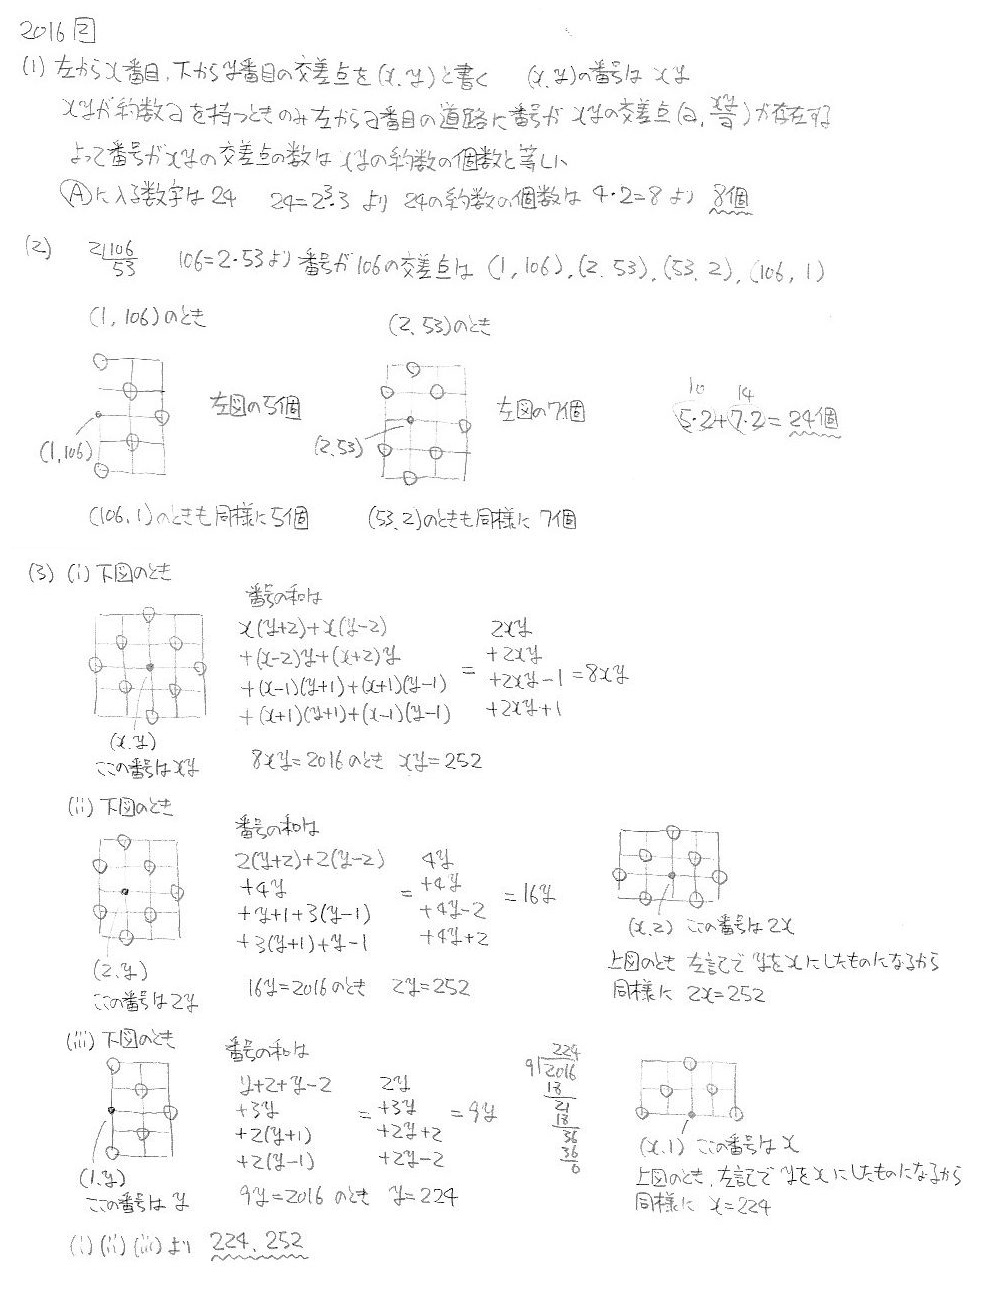 2016 2
(1) 左からx番目、下からy番目の交差点を(x, y)と書く (x, y)の番号は xy
xyが約数aを持つときのみ左からa番目の道路に番号が xyの交差点(a, xy/a)が存在する
よって番号がxyの交差点の数は xyの約数の個数と等しい
Ⓐに入る数字は 24 24=2³・3 より 24の約数の個数は 4・2=8 より 8個
(2) 2)106 53 106=2・53より 番号が106の交差点は (1, 106), (2, 53), (53, 2), (106, 1)
(1, 106)のとき (2, 53)のとき
左図の5個 左図の7個 10 14
5・2+7・2=24個
(1,106) (2,53)
(106, 1)のときも同様に5個 (53, 2)のときも同様に 7個
(3) (i) 下図のとき
番号の和は
x(y+2)+x(y-2) 2xy
+(x-2)y+(x+2)y +2xy
+(x-1)(y+1)+(x+1)(y-1) = +2xy-1 =8xy
+(x+1)(y+1)+(x-1)(y-1) +2xy+1
(x, y)
ここの番号はxy 8xy=2016のとき xy=252
(ii) 下図のとき
番号の和は
2(y+2)+2(y-2) 4y
+4y = +4y = 16y
+y+1+3(y-1) +4y-2
+3(y+1)+y-1 +4y+2
(x, 2) ここの番号は2x
(2, y) 上図のとき 左記で yをxにしたものになるから
ここの番号は2y 16y=2016のとき 2y=252 同様に 2x=252
(iii) 下図のとき
番号の和は 224
9)2016
y+2+y-2 2y 18
+3y = +3y = 9y 21
+2(y+1) +2y+2 18
+2(y-1) +2y-2 36
36
0
(x, 1) ここの番号は x
(1, y) 上図のとき、左記で yをxにしたものになるから
ここの番号は y 9y=2016 のとき y=224 同様に x=224
(i) (ii) (iii) より 224, 252